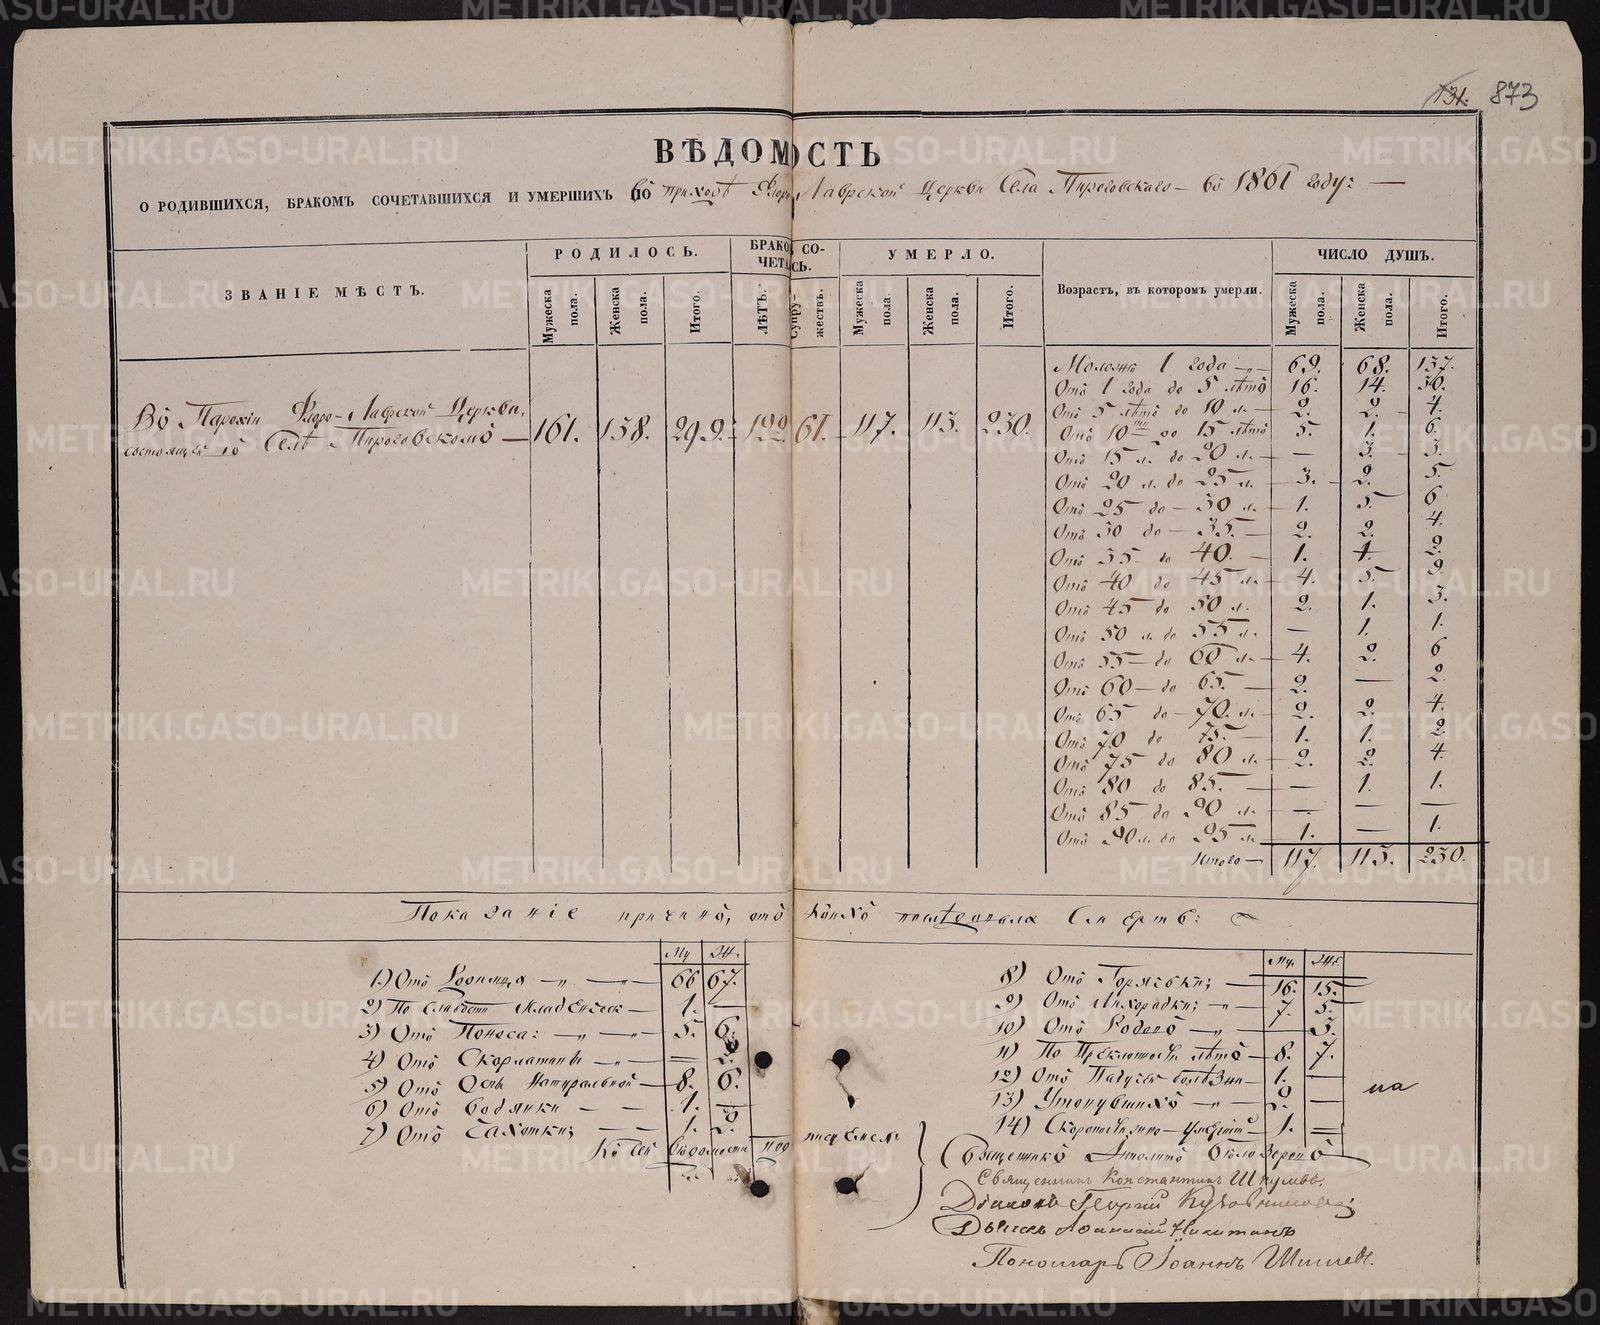 131. 873
ВѢДОМОСТЬ
О РОДИВШИХСЯ, БРАКОМЪ СОЧЕТАВШИХСЯ И УМЕРШИХЪ ПО приходѣ Флоро-Лаврской Церкви Села Пироговскаго — въ 1861 году: —
ЗВАНІЕ МѢСТЪ. РОДИЛОСЬ. БРАКО СО- УМЕРЛО. Возрастъ, въ котором умерли. ЧИСЛО ДУШЪ.
ЧЕТА СЬ.
Мужеска пола. Женска пола. Итого. ЛѢТЪ. Супружествъ. Мужеска пола. Женска пола. Итого. Мужеска пола. Женска пола. Итого.
Въ Парохіи Флоро-Лаврской Церкви,
состоящей въ Селѣ Пироговскомъ — 161. 138. 299. 122 61. 117. 113. 230.
Моложѣ 1 года — 69. 68. 137.
Отъ 1 года до 5 лѣтъ 16. 14. 30.
Отъ 5 лѣтъ до 10 л. — 2. 2. 4.
Отъ 10 ти до 15 лѣтъ 5. 1. 6.
Отъ 15 л. до 20 л. — — 3. 3.
Отъ 20 л. до 25 л. — 3. 2. 5.
Отъ 25 до — 30 л. — 1. 5. 6
Отъ 30 до — 35. — 2. 2. 4.
Отъ 35 до 40. — 1. 1. 2.
Отъ 40 до 45 л. — 4. 5. 9.
Отъ 45 до 50 л. 2. 1. 3.
Отъ 50 л. до 55 л. — 1. 1.
Отъ 55 — до 60 л. — 4. 2. 6
Отъ 60 — до 65. — 2. — 2.
Отъ 65 до — 70. л. — 2. 2. 4.
Отъ 70 до 75. — 1. 1. 2
Отъ 75 до 80 л. — 2. 2. 4
Отъ 80 до 85. — — 1. 1.
Отъ 85 до 90 л. — — —
Отъ 90 л. до 95 л. 1. — 1.
Итого — 117. 113. 230.
Показаніе причинъ, отъ коихъ послѣдовала Смерть:
Му Ж.
1) Отъ Родимца — 66 67.
2) По Слабости Младенческ — 1. —
3) Отъ Поноса: — 5. 6.
4) Отъ Скорлатины — — 2.
5) Отъ Оспы Натуральной — 8. 6.
6) Отъ Водянки — 1. —
7) Отъ Чахотки; — 1. 2.
Му. Ж.
8) Отъ Горячьки; — 16. 15.
9) Отъ Лихорадки; — 7. 5.
10) Отъ Родовъ — 3.
11) По Преклонности лѣтъ — 8. 7.
12) Отъ Падучей болѣзни — 1. —
13) Утонувшихъ — 2. —
14) Скоропостижно — 1. —
Къ сей Вѣдомости под писуемся
на
Священникъ Ипполитъ Бѣлозеровъ
Священникъ Константинъ
Діаконъ Георгій
Дьячекъ Афанасій Никитинъ
Пономарь Іоаннъ Шишевъ.
METRIKI.GASO-URAL.RU